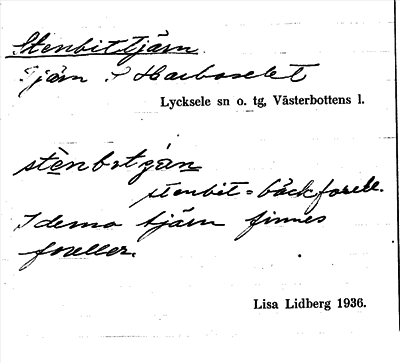 Stenbittjärn
Tjärn S Harbäselet
Lycksele sn o. tg, Västerbottens l.
stenbitgån
stenbit = bäckforell.
I denna tjärn finnes
foreller.
Lisa Lidberg 1936.